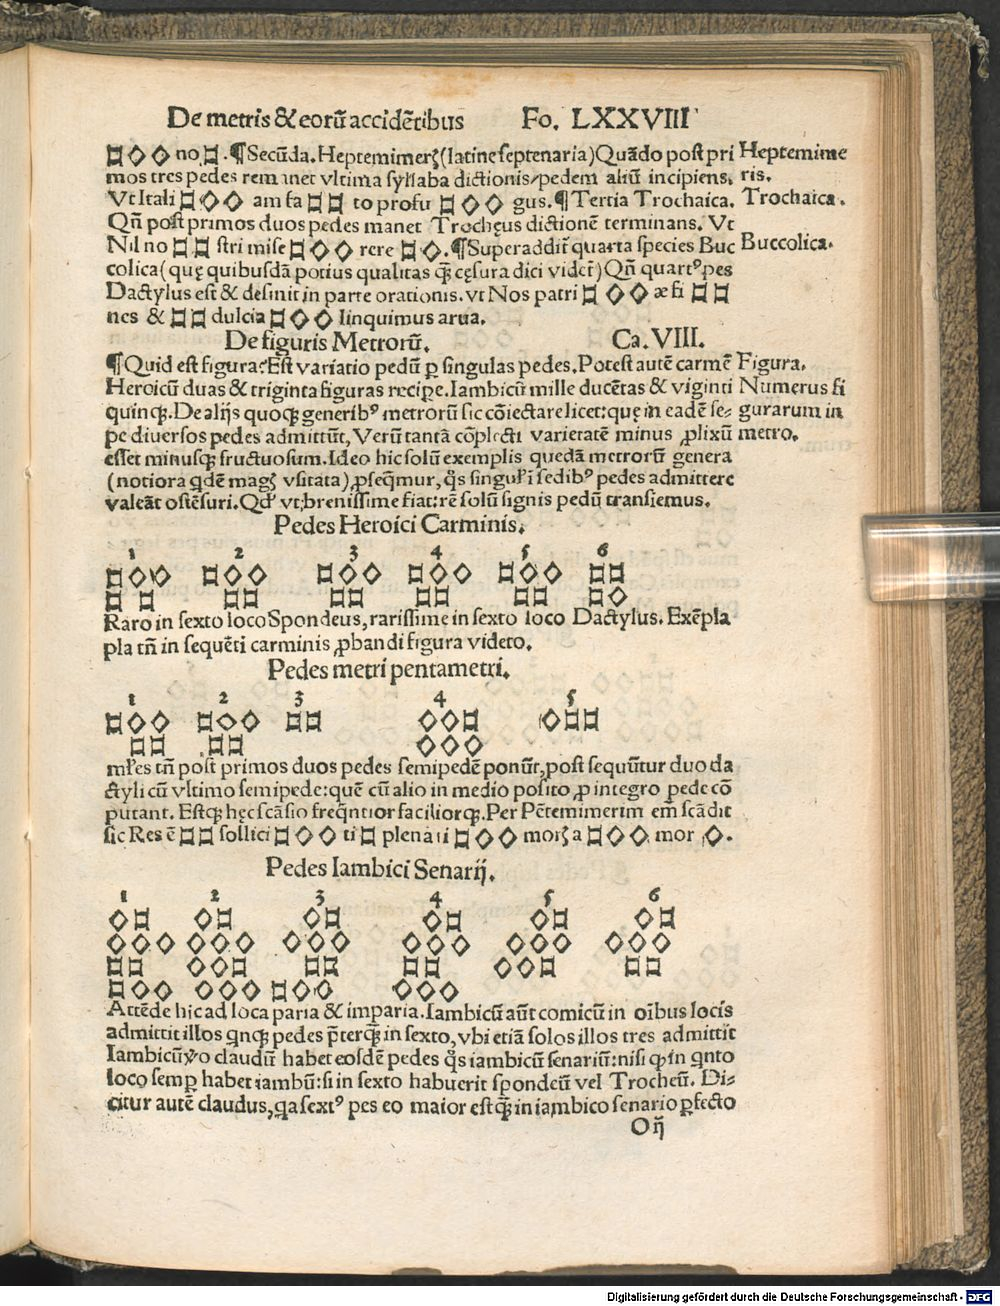 De metris & eorũ accidẽtibus Fo. LXXVIII
no . ¶ Secũda. Heptemimerꝭ (latine septenaria) Quãdo post pri Heptemime
mos tres pedes remanet vltima syllaba dictionis/pedem aliũ incipiens. ris.
Vt Itali am fa to profu gus. ¶ Tertia Trochaica. Trochaica.
Qñ post primos duos pedes manet Trochęus dictionẽ terminans. Vt
Nil no stri mise rere . ¶ Superaddit̃ quarta species Buc Buccolica.
colica (quę quibusdã potius qualitas q̃ cęsura dici videt̃) Qñ quartꝰ pes
Dactylus est & desinit in parte orationis. vt Nos patri æ fi
nes & dulcia linquimus arua.
De figuris Metrorũ. Ca. VIII.
¶ Quid est figura? Est variatio pedũ ꝑ singulas pedes. Potest autẽ carmẽ Figura.
Heroicũ duas & triginta figuras recipe. Iambicũ mille ducẽtas & viginti Numerus fi
quinqꝫ. De alijs quoqꝫ generibꝰ metrorũ sic cõiectare licet: quę in eadẽ se⸗ gurarum in
pe diuersos pedes admittũt, Verũ tantã cõplecti varietatẽ minus ꝓlixũ metro.
esset minusqꝫ fructuosum. Ideo hic solũ exemplis quedã metrorũ genera
(notiora qdẽ magꝭ vsitata) ꝓseq̃mur, q̃s singuł'i sedibꝰ pedes admittere
valeãt ostẽsuri. Qd' vt; breuissime fiat: rẽ solũ signis pedũ transiemus.
Pedes Heroici Carminis.
1 2 3 4 5 6
Raro in sexto loco Spondeus, rarissime in sexto loco Dactylus. Exẽpla
pla tñ in sequẽti carminis ꝓbandi figura videto.
Pedes metri pentametri.
1 2 3 4 5
mł'es tñ post primos duos pedes semipedẽ ponũt, post sequũtur duo da
ctyli cũ vltimo semipede: quẽ cũ alio in medio posito ꝓ integro pede cõ
putant. Estqꝫ hęc scãsio freq̃ntior faciliorqꝫ. Per Pẽtemimerim em̃ scãdit̃
sic Res ẽ sollici ti plena ti morꝭ a mor .
Pedes Iambici Senarij.
1 2 3 4 5 6
Attẽde hic ad loca paria & imparia. Iambicũ aũt comicũ in oĩbus locis
admittit illos qnqꝫ pedes p̃terq̃ in sexto, vbi etiã solos illos tres admittit
Iambicũ ꝟo claudũ habet eosdẽ pedes q̃s iambicũ senariũ: nisi ꝙ in qnto
loco semꝑ habet iambũ: si in sexto habuerit spondeũ vel Trocheũ. Di⸗
citur autẽ claudus, qa sextꝰ pes eo maior est q̃ in iambico senario ꝑfecto
O ij
Digitalisierung gefördert durch die Deutsche Forschungsgemeinschaft - DFG